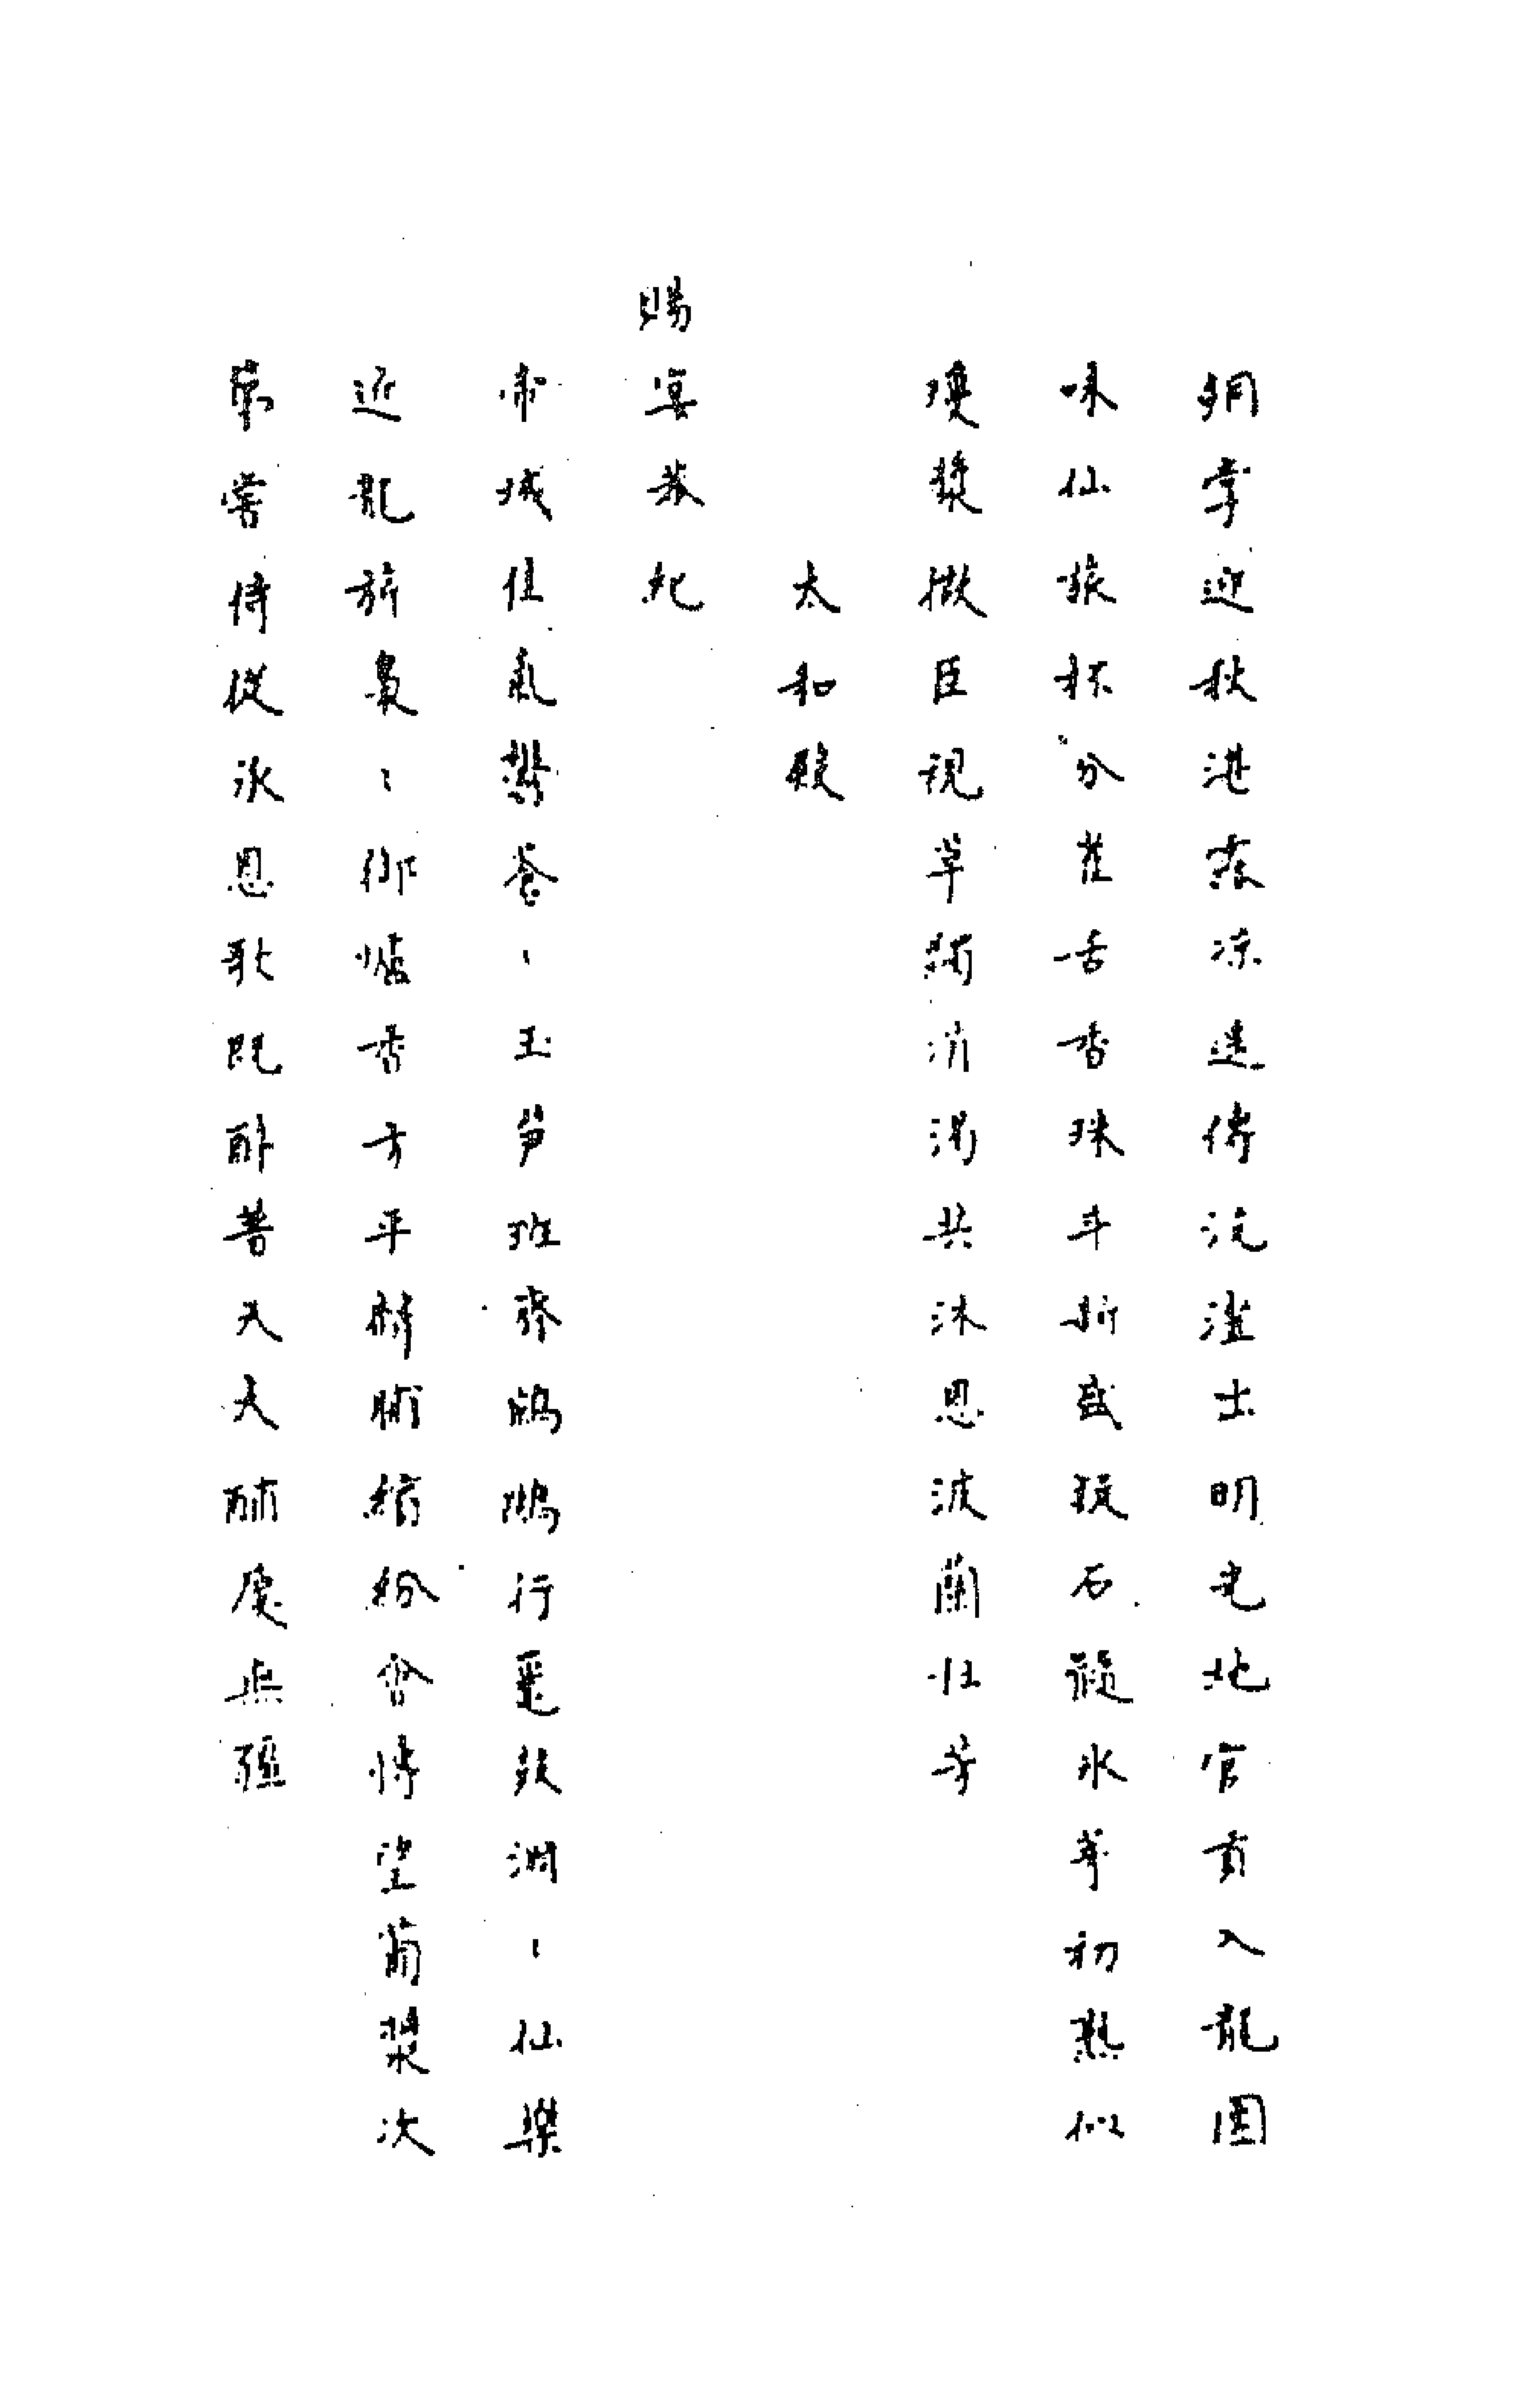 銅掌迎秋湛露凉遠傳沆瀣出明光地官貢入龍團
味仙旅杯分雀舌香珠斗斟盛疑石髓氷芽初熟似
瓊漿微臣視草蠲消渴共沐恩波蘭茝芳
太和殿
賜宴恭紀
帝城佳氣鬱蒼〻玉筍班齊鵷鷺行疊鼓淵〻仙樂
近龍旂裊〻御爐香方平麟脯繽紛會博望葡漿次
第嘗侍從承恩歌既醉普天大酺慶無疆